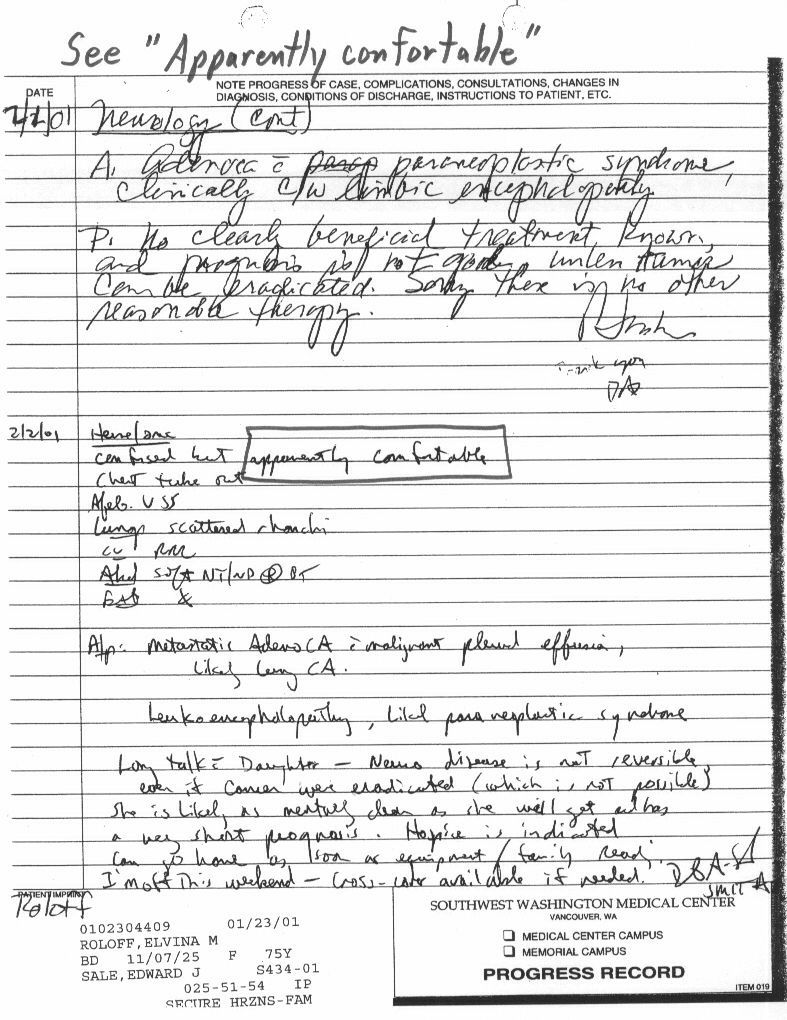 See "Apparently confortable"
NOTE PROGRESS OF CASE, COMPLICATIONS, CONSULTATIONS, CHANGES IN
DATE
DIAGNOSIS, CONDITIONS OF DISCHARGE, INSTRUCTIONS TO PATIENT, ETC.
2/2/01 Neurology (cont)
A. Adenoca c̄ paraneoplastic syndrome,
clinically c/w limbic encephalopathy
P. No clearly beneficial treatment known,
and prognosis is not good, unless tumor
can be eradicated. Sorry there is no other
reasonable therapy.
Thank you
2/2/01 Heme/onc
confused but apparently comfortable
Chest tube out
Afeb. VSS
Lungs scattered rhonchi
CV RRR
Abd soft NT/ND ⊕ BS
A/P: Metastatic AdenoCA c̄ malignant pleural effusion,
Likely Lung CA.
Leukoencephalopathy, Likely paraneoplastic syndrome
Long talk c̄ Daughter – Neuro disease is not reversible,
even if cancer were eradicated (which is not possible)
She is likely as mentally clear as she will get and has
a very short prognosis. Hospice is indicated
Can go home as soon as equipment/family ready.
I'm off this weekend – cross-cover available if needed.
PATIENT IMPRINT
Roloff
0102304409 01/23/01
ROLOFF,ELVINA M
BD 11/07/25 F 75Y
SALE,EDWARD J S434-01
025-51-54 IP
SECURE HRZNS-FAM
SOUTHWEST WASHINGTON MEDICAL CENTER
VANCOUVER, WA
❏ MEDICAL CENTER CAMPUS
❏ MEMORIAL CAMPUS
PROGRESS RECORD
ITEM 019